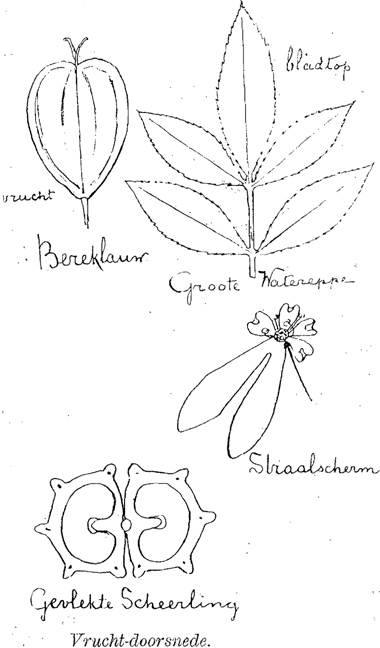 bladtop
vrucht
Bereklauw
Groote Watereppe
Straalscherm
Gevlekte Scheerling
Vrucht-doorsnede.